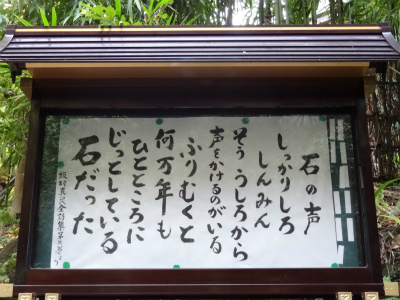 石の声
しっかりしろ
しんみん
そう うしろから
声をかけるのがいる
ふりむくと
何万年も
ひとところに
じっとしている
石だった
坂村真民全詩集第六巻より